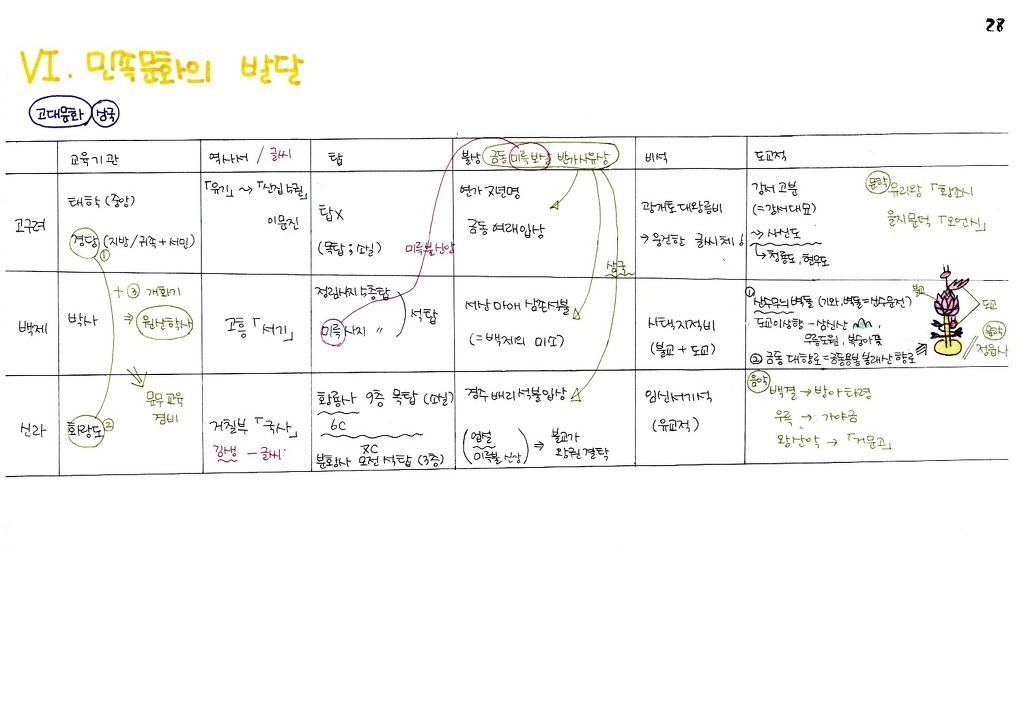 28
VI. 민족문화의 발달
고대문화 삼국
교육기관
역사서 / 글씨
탑
불상 금동 미륵보살 반가사유상
비석
도교적
고구려
태학 (중앙)
경당 (지방/귀족+서민)
①
「유기」 ~> 「신집 5권」
이문진
탑X
(목탑 ; 소실)
미륵불신앙
연가 7년명
금동 여래입상
삼국
광개토대왕릉비
→ 웅건한 글씨체
강서 고분
(=강서대묘)
~> 사신도
↳ 청룡도, 현무도
문학 유리왕 「황조가」
을지문덕 「오언시」
백제
박사
+ ③ 개화기
⇒ 원산학사
고흥 「서기」
정림사지 5층탑
미륵사지 〃
석탑
서산 마애 삼존석불
(= 백제의 미소)
사택지적비
(불교 + 도교)
① 산수무늬 벽돌 (기와, 벽돌=산수문전)
도교이상향 - 삼신산,
무릉도원, 복숭아꽃
② 금동 대향로 = 금동용봉 봉래산 향로
불교
도교
음악
정읍사
신라
화랑도 ②
문무교육
겸비
거칠부 「국사」
김생 - 글씨
황룡사 9층 목탑 (소실)
6C
7C
분황사 모전 석탑 (3층)
경주 배리 석불입상
(업설
미륵불 신앙) ⇒ 불교가
왕권 결탁
임신서기석
(유교적)
음악 백결 → 방아타령
우륵 → 가야금
왕산악 → 「거문고」